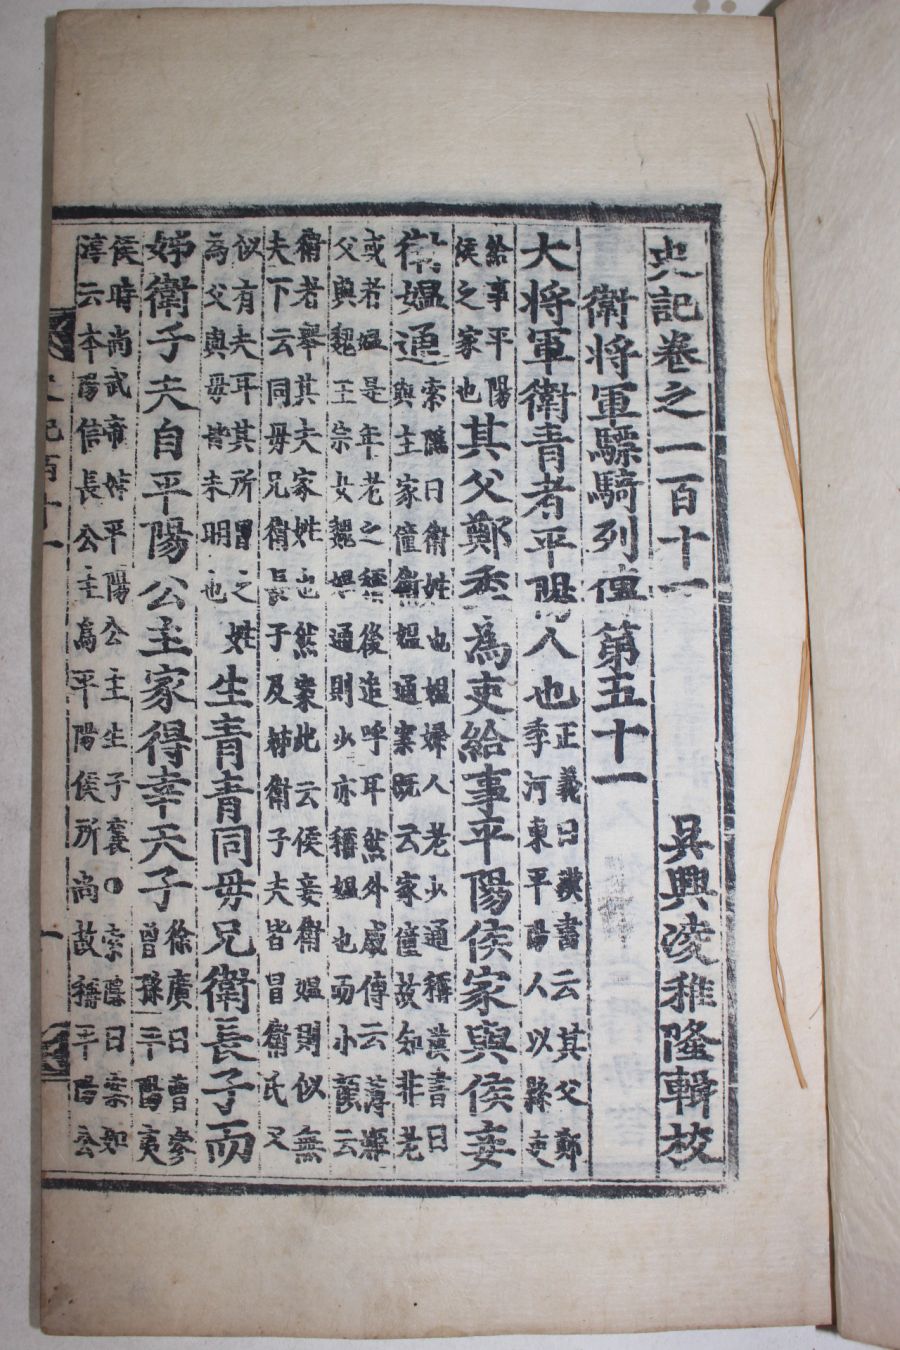 史記卷之一百十一 吳興凌稚隆輯校
衛將軍驃騎列傳第五十一
大將軍衛青者平陽人也正義曰漢書云其父鄭
季河東平陽人以縣吏
給事平陽
侯之家也其父鄭季為吏給事平陽侯家與侯妾
衛媼通索隱曰衛姓也媼婦人老少通稱漢書曰
與主家僮衛媼通案既云家僮故知非老
或者媼是年老之經後追呼耳然外戚傳云薄姬
父與魏王宗女魏媼通則少亦稱媼也而小顏云
衛者舉其夫家姓也然案此云侯妾衛媼則似無
夫下云同毋兄衛長子及姊衛子夫皆冒衛氏又
似有夫耳其所冒之姓
為父與毋皆未明也生青青同毋兄衛長子而
姊衛子夫自平陽公主家得幸天子徐廣曰曹參
曾孫平陽夷
侯時尚武帝姊平陽公主生子襄○索隱曰案如
淳云本陽信長公主為平陽侯所尚故稱平陽公
史記百十一 一